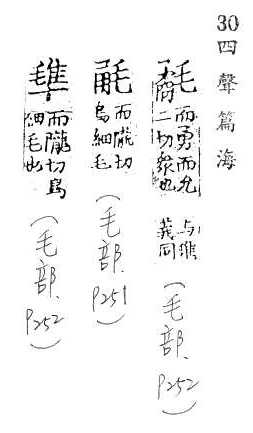 30四聲篇海
而勇而允
二切衆也
与
義同
(毛部、P252)
而隴切
鳥細毛
(毛部、P251)
而隴切鳥
細毛也
(毛部、P252)